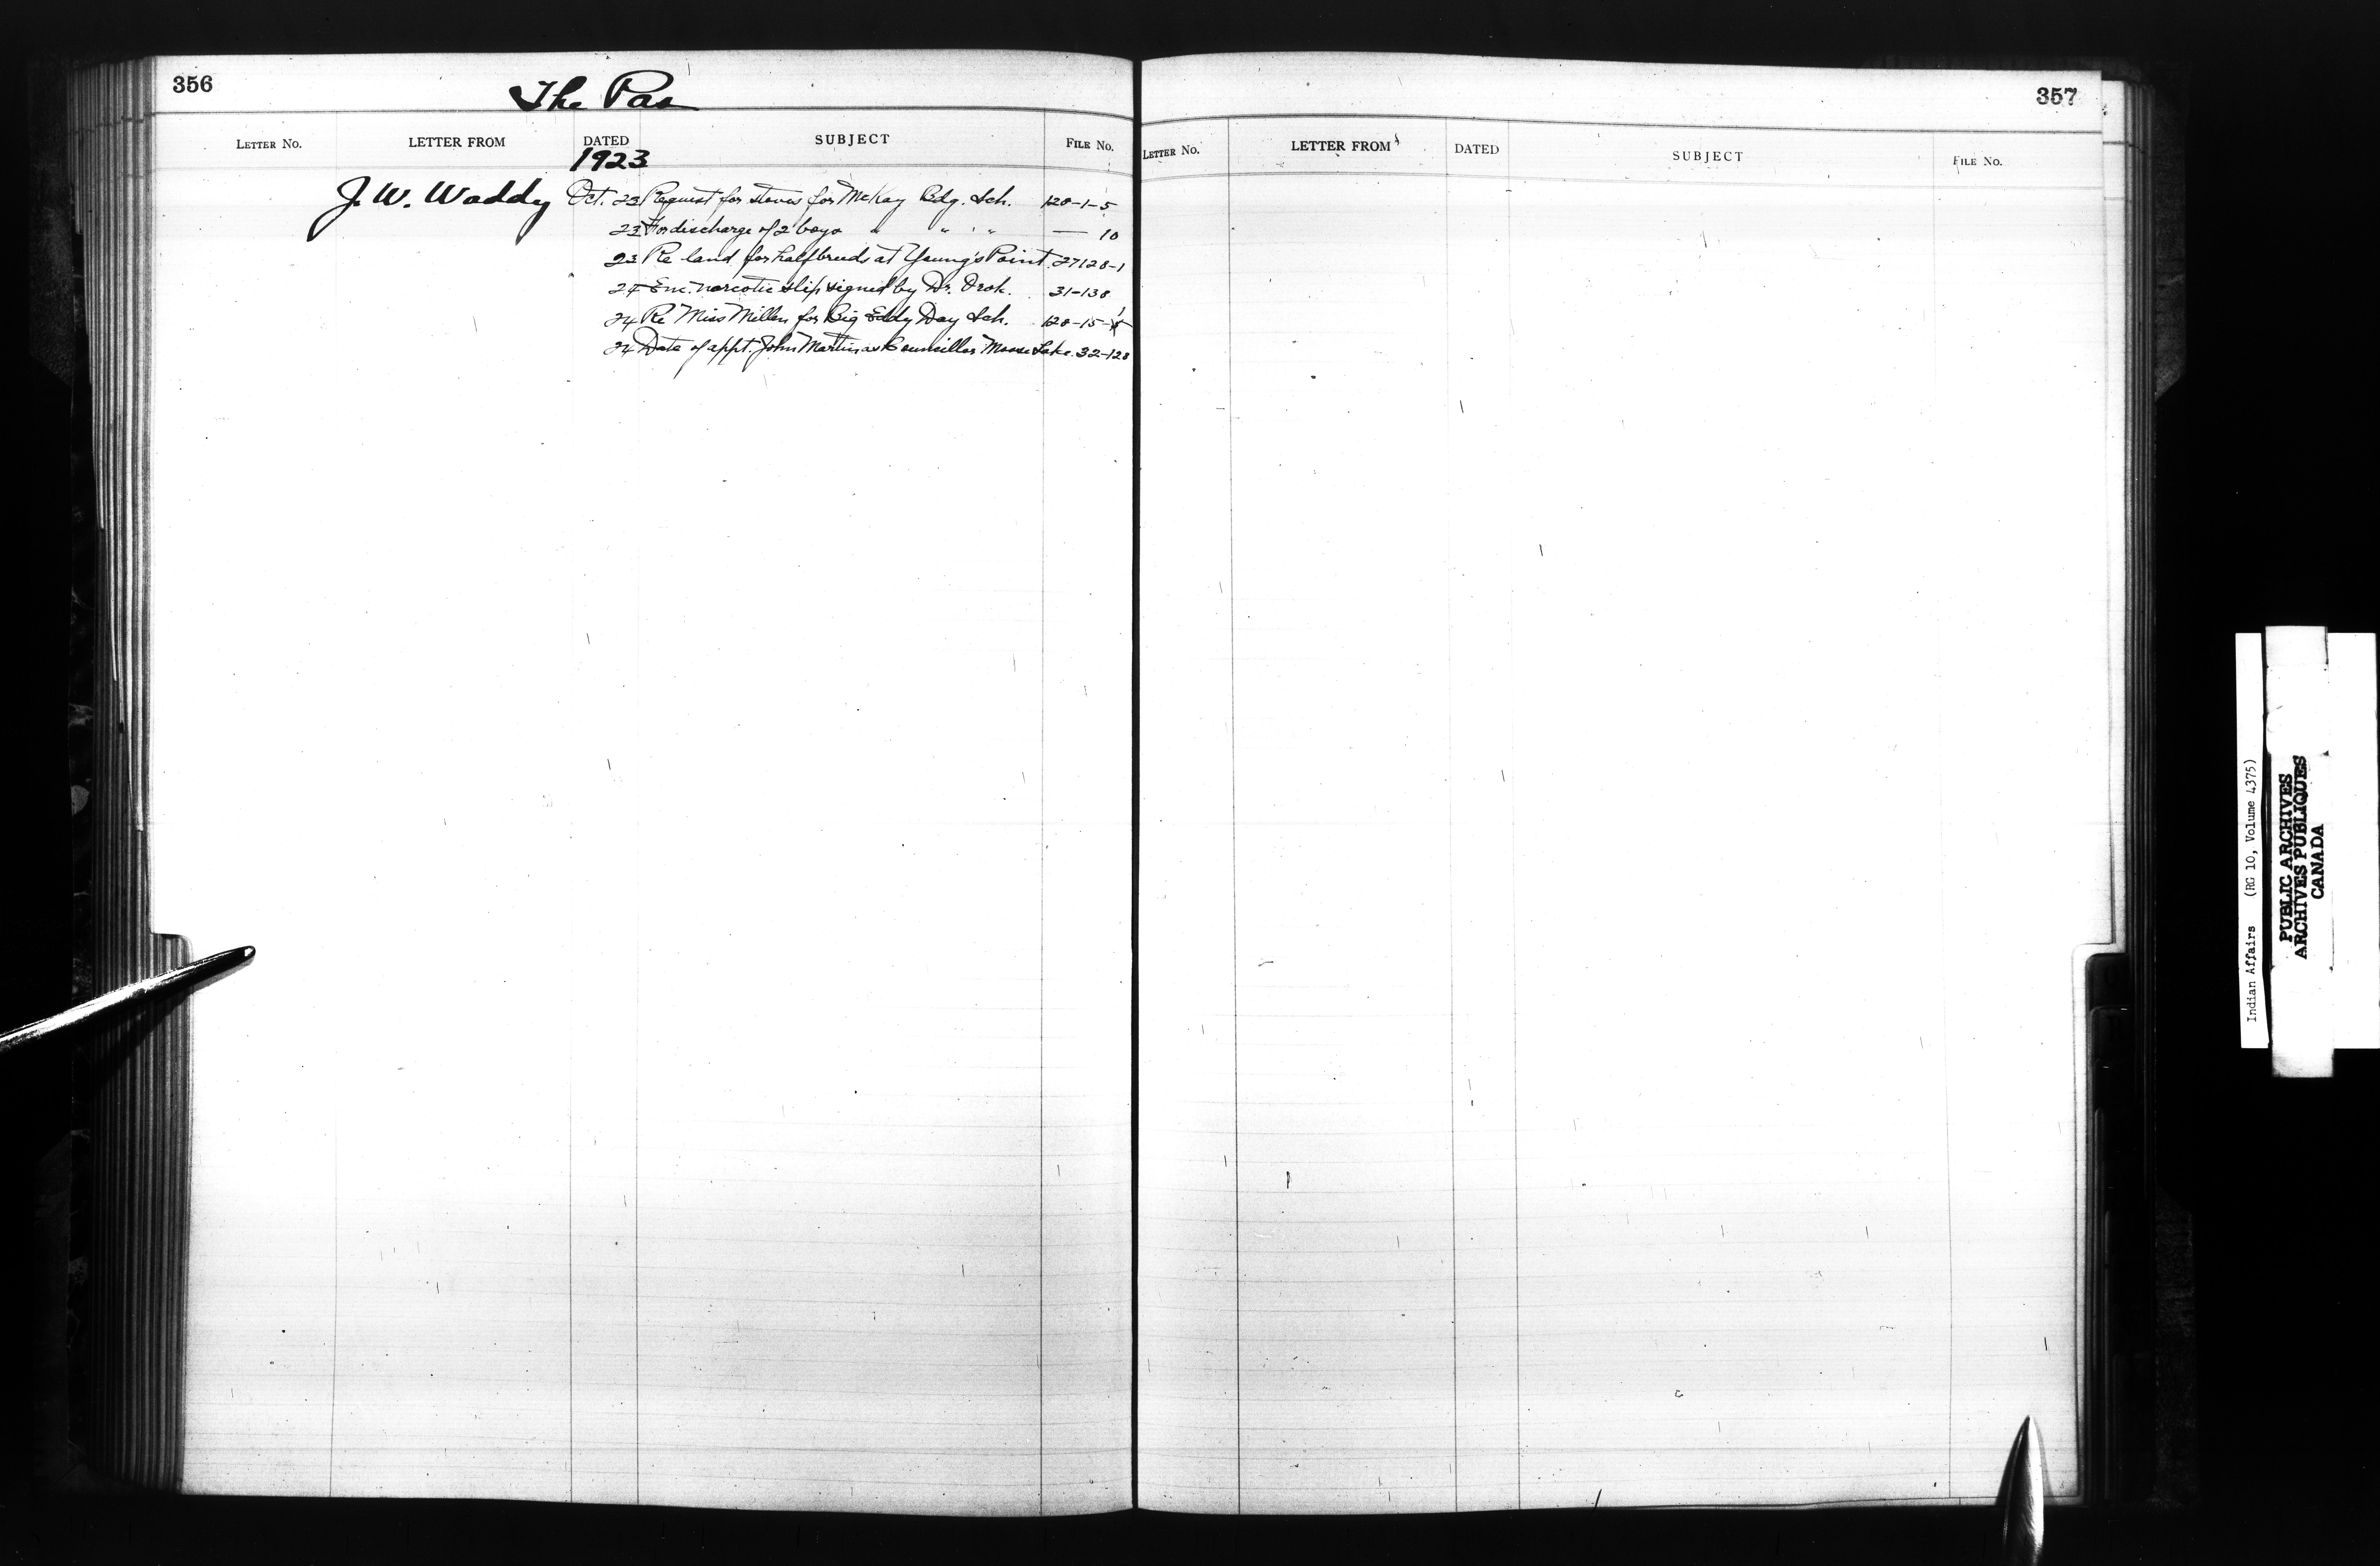 356
The Pas
LETTER No. LETTER FROM DATED SUBJECT FILE No.
1923
J. W. Waddy Oct. 23 Request for stoves for McKay Bdg. Sch. 128-1-5
23 For discharge of 2 boys " " " — 10
23 Re land for halfbreeds at Young's Point. 27128-1
24 Enc. narcotic slip signed by Dr. Orok. 31-138
24 Re Miss Millen for Big Eddy Day Sch. 128-15-1
24 Date of appt. John Martin as Councillor Moose Lake. 32-128
357
LETTER No. LETTER FROM DATED SUBJECT FILE No.
Indian Affairs (RG 10, Volume 4375)
PUBLIC ARCHIVES
ARCHIVES PUBLIQUES
CANADA